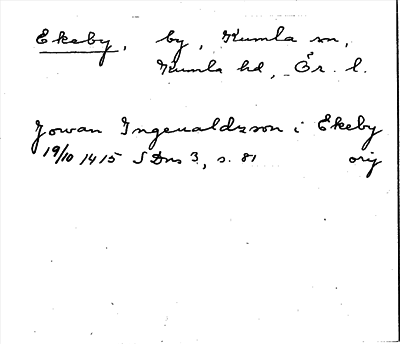 Ekeby, by, Kumla sn,
Kumla hd, Ör. l.
Jowan Ingeualdzson i Ekeby
19/10 1415 SDns 3, s. 81 orig